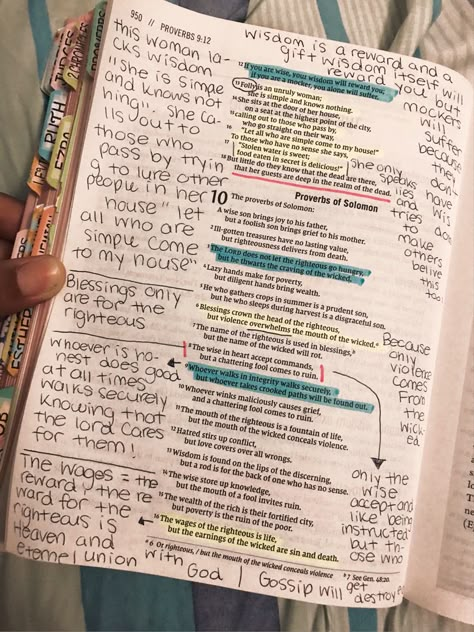 950 // PROVERBS 9:12
WISDOM is a reward and a
gift wisdom itself will
reward you but
mockers
will
suffer
because
they
don't
have
wis
dom
this woman la-
cks wisdom
"she is simple
and knows not
hing". She ca
lls out to
those who
pass by tryin
g to lure other
people in her
house" let
all who are
simple come
to my house"
Blessings only
are for the
righteous
whoever is ho-
nest does good
at all times
walks securely
knowing that
the lord cares
for them!
The wages = the
reward / the re
ward for the
righteous is
Heaven and
eternel union
with God | Gossip will get
destroyed
12 If you are wise, your wisdom will reward you;
if you are a mocker, you alone will suffer.
13 Folly is an unruly woman;
she is simple and knows nothing.
14 She sits at the door of her house,
on a seat at the highest point of the city,
15 calling out to those who pass by,
who go straight on their way,
16 "Let all who are simple come to my house!"
To those who have no sense she says,
17 "Stolen water is sweet;
food eaten in secret is delicious!"
18 But little do they know that the dead are there,
that her guests are deep in the realm of the dead.
she only
speaks
lies and
tries
to
make
others
belive
this
too
Proverbs of Solomon
10 The proverbs of Solomon:
A wise son brings joy to his father,
but a foolish son brings grief to his mother.
2 Ill-gotten treasures have no lasting value,
but righteousness delivers from death.
3 The LORD does not let the righteous go hungry,
but he thwarts the craving of the wicked.
4 Lazy hands make for poverty,
but diligent hands bring wealth.
5 He who gathers crops in summer is a prudent son,
but he who sleeps during harvest is a disgraceful son.
6 Blessings crown the head of the righteous,
but violence overwhelms the mouth of the wicked.a
7 The name of the righteous is used in blessings,b
but the name of the wicked will rot.
8 The wise in heart accept commands,
but a chattering fool comes to ruin.
9 Whoever walks in integrity walks securely,
but whoever takes crooked paths will be found out.
10 Whoever winks maliciously causes grief,
and a chattering fool comes to ruin.
11 The mouth of the righteous is a fountain of life,
but the mouth of the wicked conceals violence.
12 Hatred stirs up conflict,
but love covers over all wrongs.
13 Wisdom is found on the lips of the discerning,
but a rod is for the back of one who has no sense.
14 The wise store up knowledge,
but the mouth of a fool invites ruin.
15 The wealth of the rich is their fortified city,
but poverty is the ruin of the poor.
16 The wages of the righteous is life,
but the earnings of the wicked are sin and death.
a 6 Or righteous, / but the mouth of the wicked conceals violence
b 7 See Gen. 48:20.
Because
only
violence
comes
from
the
wick-
ed
only the
wise
accept and
like being
instructed
but th-
ose who
RUTH
EZRA
ESTHER